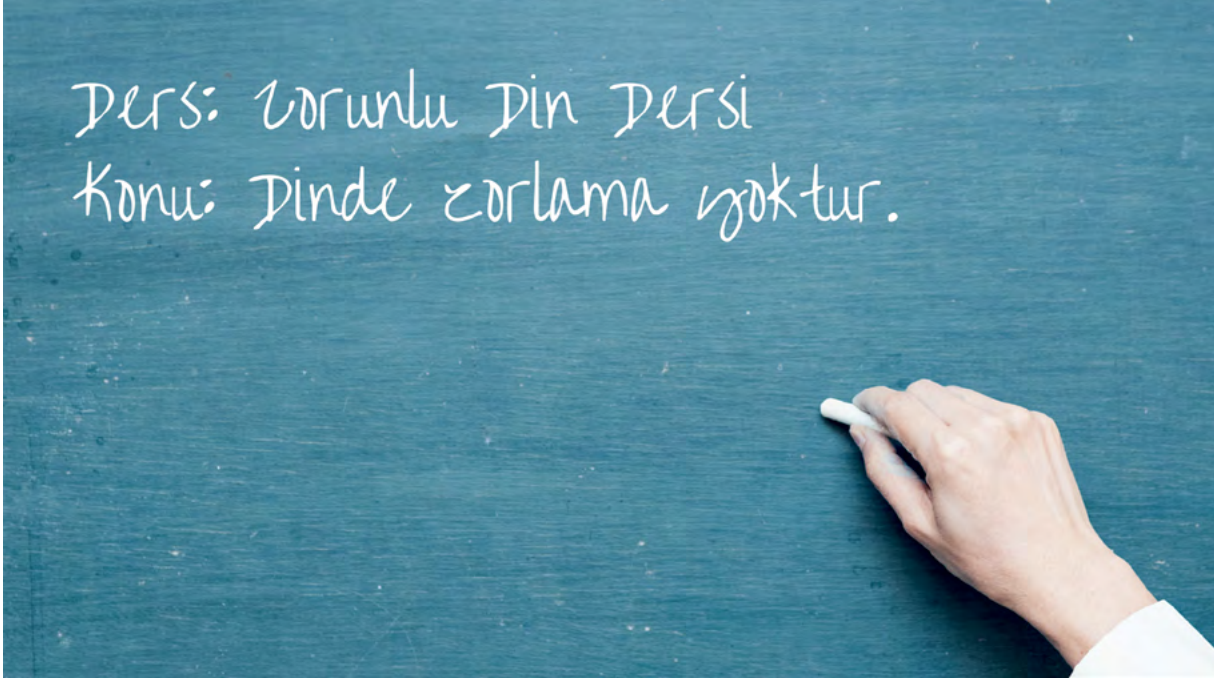 Ders: Zorunlu Din Dersi
Konu: Dinde zorlama yoktur.